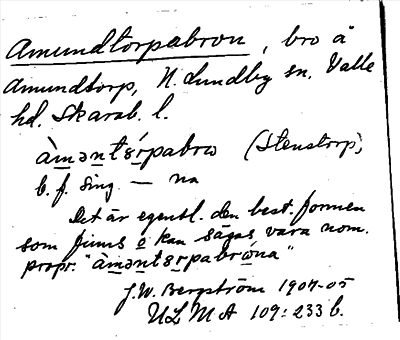 Amundtorpabron, bro å
Amundtorp, N. Lundby sn, Valle
hd. Skarab. l.
àməntsŕpabrω (Stenstorp)
b. f. sing. — na
Det är egentl. den best. formen
som finns o kan sägas vara nom.
propr. "àməntsrpabrώna"
J. W. Bergström 1904-05
ULMA 109:233 b.